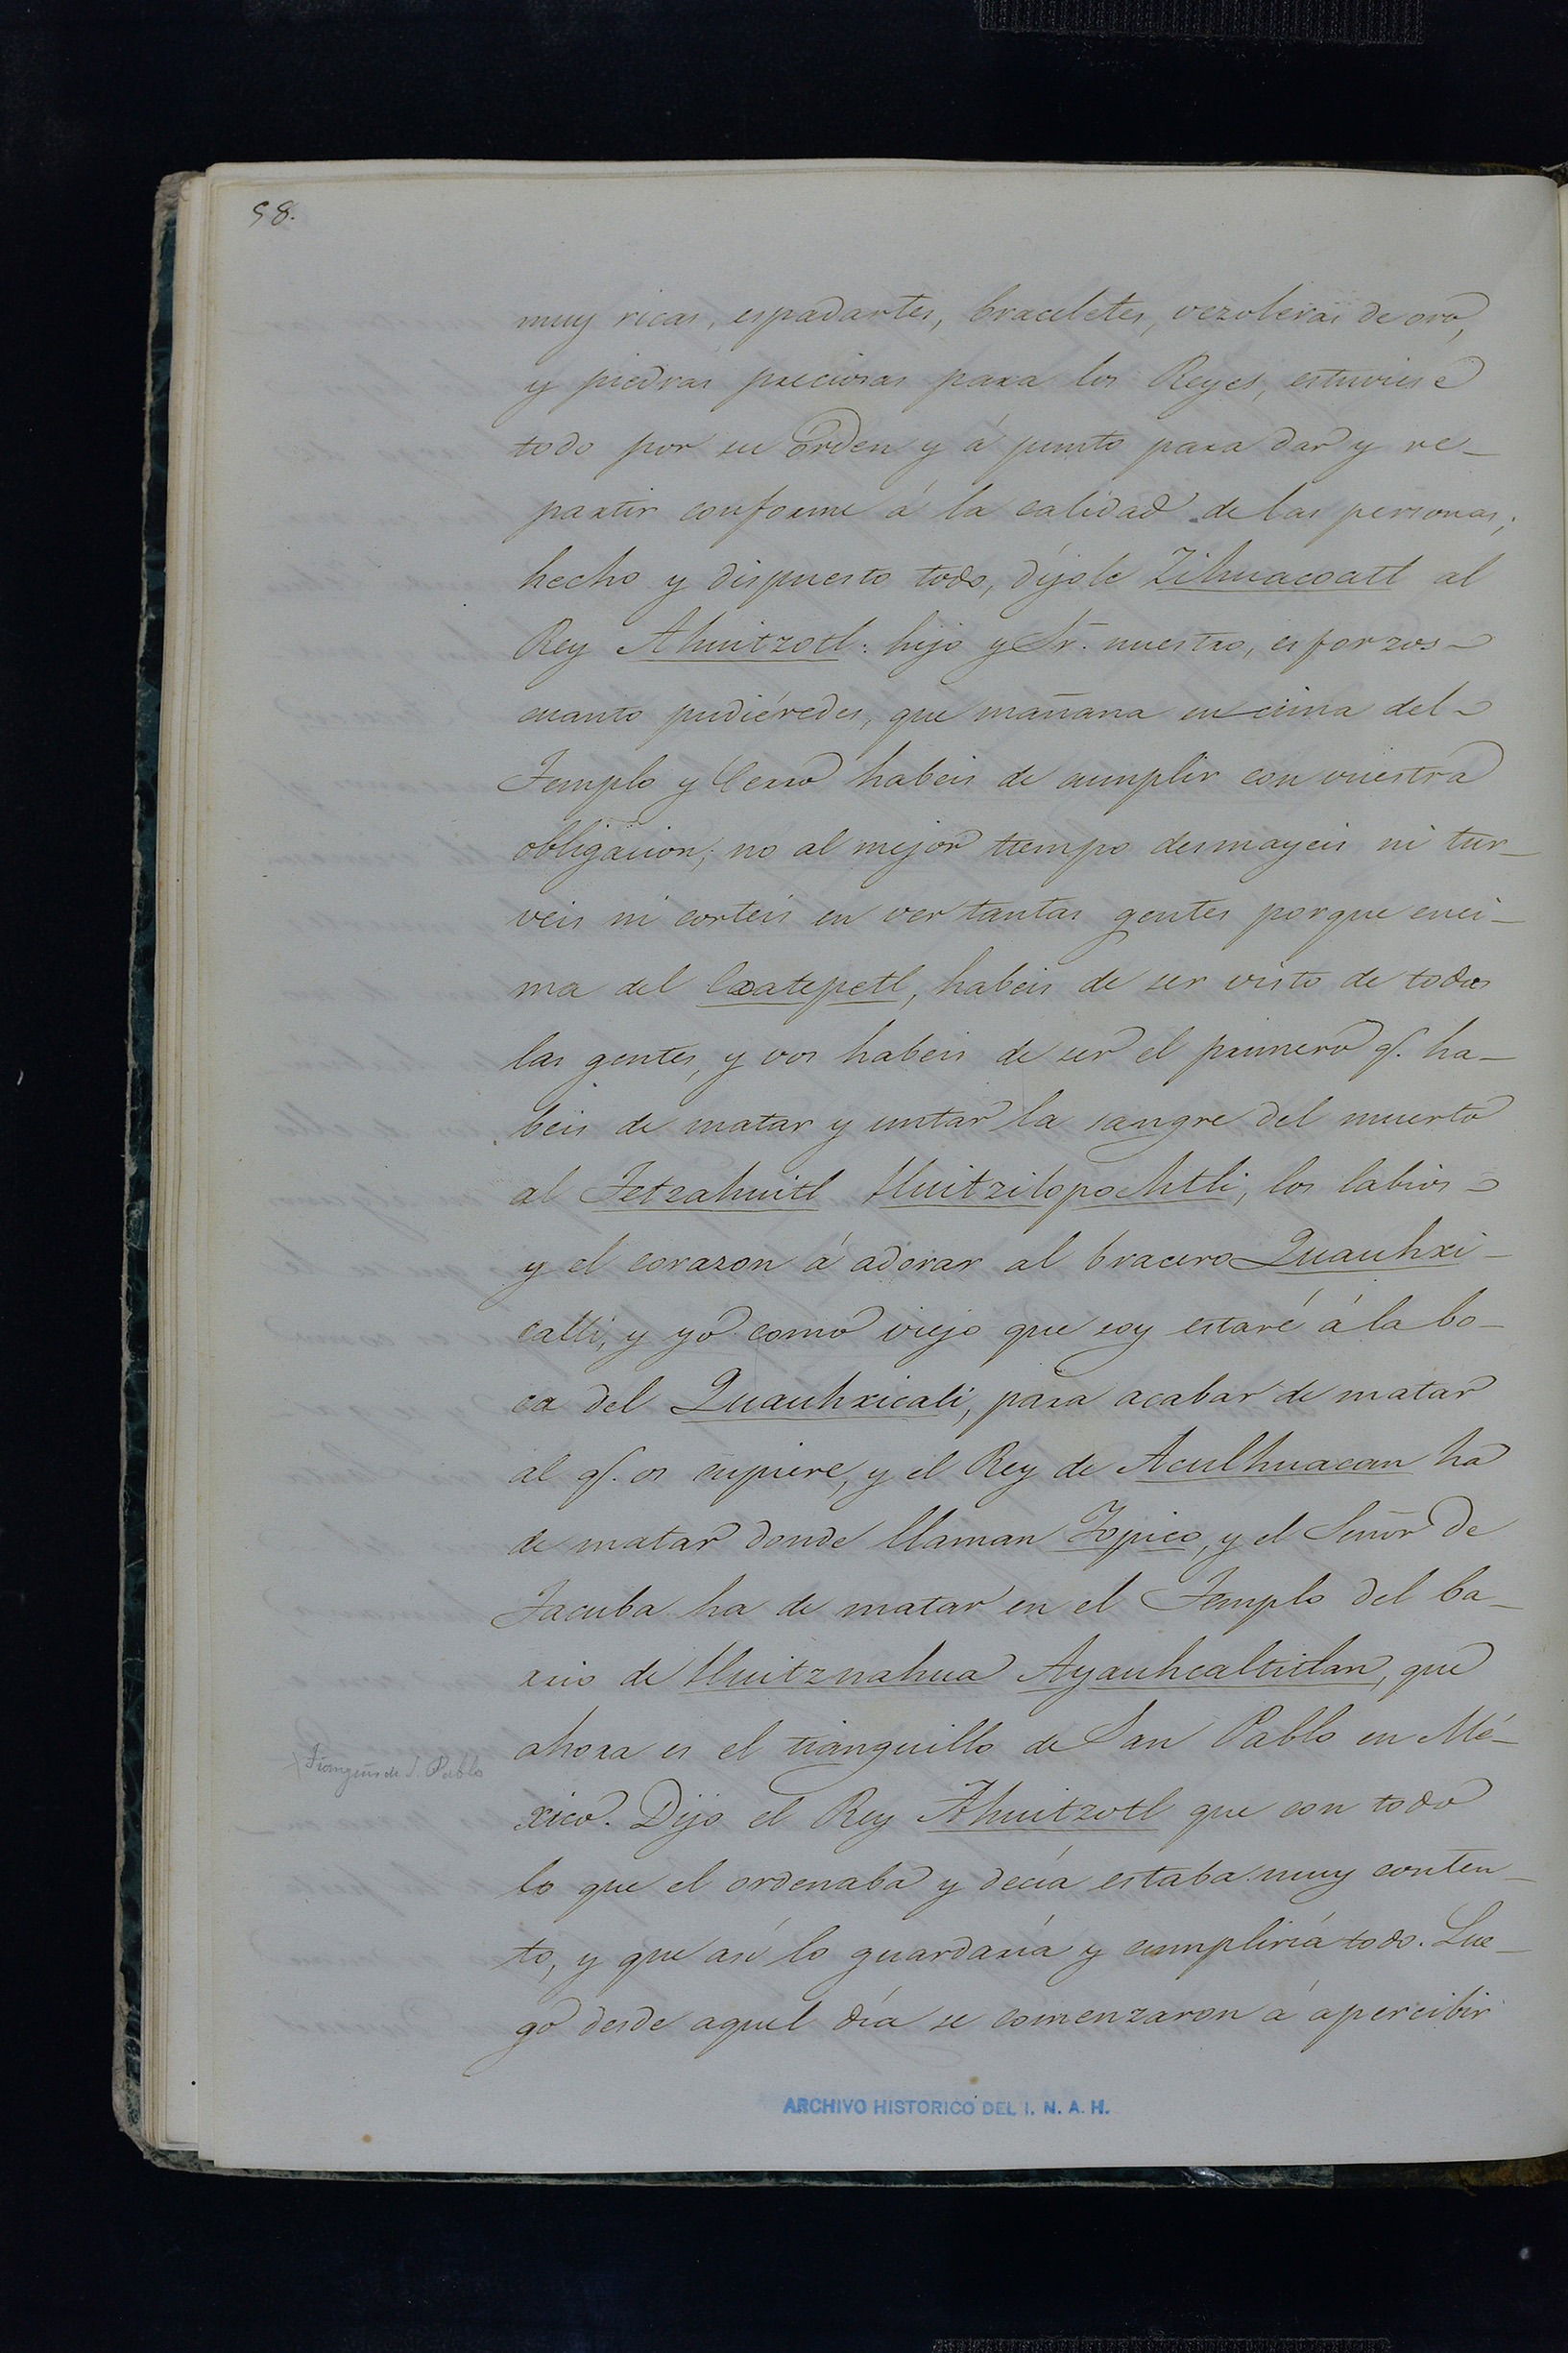 98.
muy ricas, espadartes, braceletes, vezoleras de oro,
y piedras preciosas para los Reyes, estuviese
todo por su órden y á punto para dar y re-
partir conforme á la calidad de las personas;
hecho y dispuesto todo, díjole Zihuacoatl al
Rey Ahuitzotl: hijo y Sr. nuestro, esforzos
cuanto pudiéredes, que mañana en cima del
Templo y Cerro habeis de cumplir con vuestra
obligacion; no al mejor tiempo desmayeis ni tur-
veis ni corteis en ver tantas gentes porque enci-
ma del Coatepetl, habeis de ser visto de todas
las gentes, y vos habeis de ser el primero q. ha-
beis de matar y untar la sangre del muerto
al Tetzahuitl Huitzilopochtli, los labios
y el corazon á adorar al bracero Quauhxi-
calli, y yo como viejo que soy estaré á la bo-
ca del Quauhxicali, para acabar de matar
al q. os cupiere, y el Rey de Aculhuacan ha
de matar donde llaman Yopico, y el Señor de
Tacuba ha de matar en el Templo del ba-
rrio de Huitznahua Ayauhcaltitlan, que
ahora es el tianguillo de San Pablo en Mé-
Tianguis de S. Pablo
xico. Dijo el Rey Ahuitzotl que con todo
lo que el ordenaba y decía estaba muy conten-
to, y que así lo guardaría y cumpliría todo. Lue-
go desde aquel día se comenzaron á apercibir
ARCHIVO HISTORICO DEL I. N. A. H.